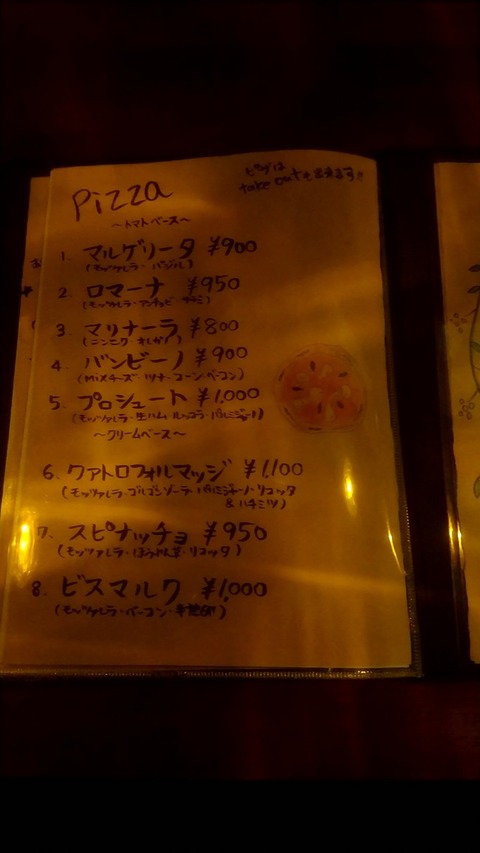 Pizza
ピザは
take outも出来ます!!
～トマトベース～
1. マルゲリータ ¥900
(モッツァレラ・バジル)
2. ロマーナ ¥950
(モッツァレラ・アンチョビ・サラミ)
3. マリナーラ ¥800
(ニンニク・オレガノ)
4. バンビーノ ¥900
(Mixチーズ・ツナ・コーン・ベーコン)
5. プロシュート ¥1,000
(モッツァレラ・生ハム・ルッコラ・パルミジャーノ)
～クリームベース～
6. クァトロフォルマッジ ¥1,100
(モッツァレラ・ゴルゴンゾーラ・パルミジャーノ・リコッタ
& ハチミツ)
7. スピナッチョ ¥950
(モッツァレラ・ほうれん草・リコッタ)
8. ビスマルク ¥1,000
(モッツァレラ・ベーコン・半熟卵)